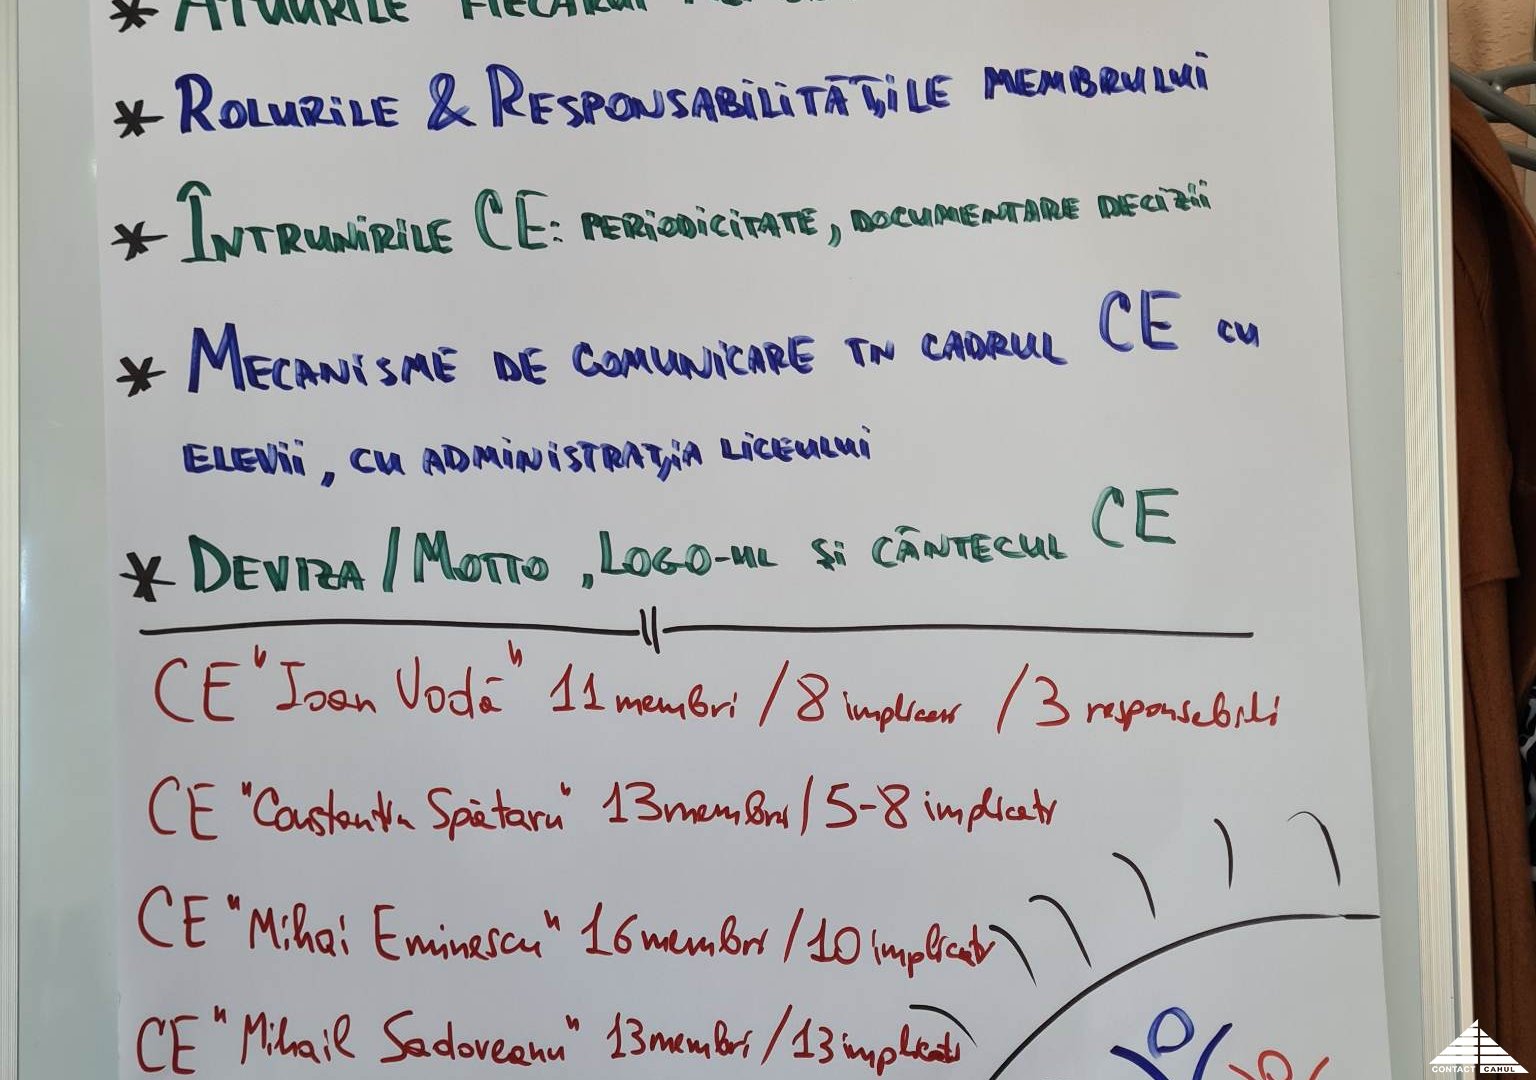 * ATUURILE FIECĂRUI
* ROLURILE & RESPONSABILITĂȚILE MEMBRULUI
* ÎNTRUNIRILE CE: PERIODICITATE, DOCUMENTARE DECIZII
* MECANISME DE COMUNICARE ÎN CADRUL CE CU
ELEVII, CU ADMINISTRAȚIA LICEULUI
* DEVIZA/MOTTO, LOGO-UL ȘI CÂNTECUL CE
CE "Ioan Vodă" 11 membri / 8 implicați / 3 responsabili
CE "Constantin Spătaru" 13 membri / 5-8 implicați
CE "Mihai Eminescu" 16 membri / 10 implicați
CE "Mihail Sadoveanu" 13 membri / 13 implicați
CONTACT CAHUL